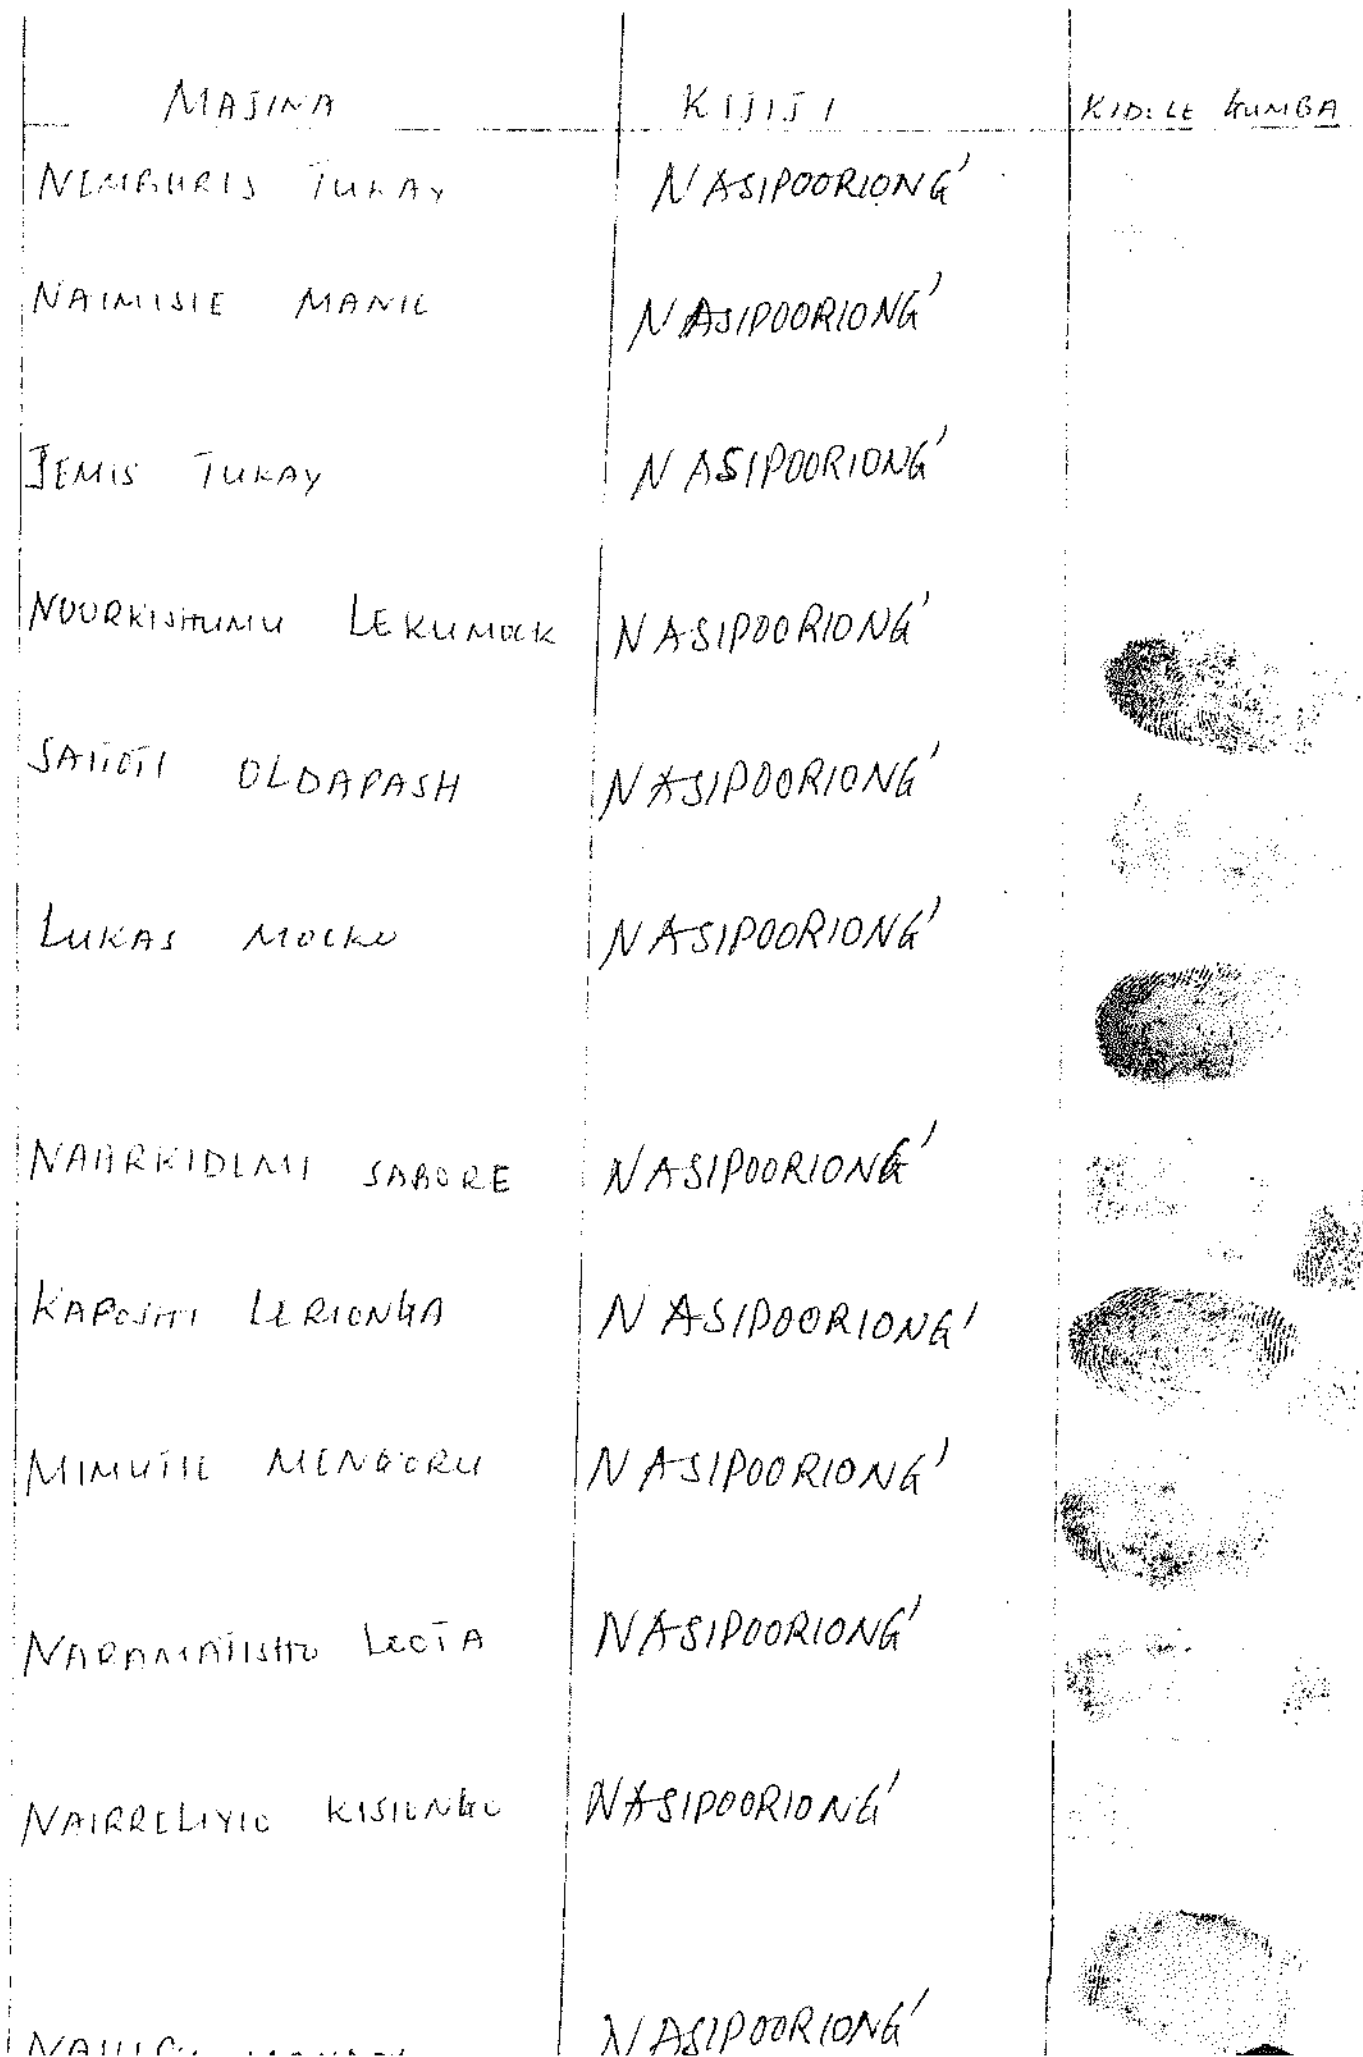 MAJINA KIJIJI KIDOLE GUMBA
NEMBURIS TUKAY NASIPOORIONG'
NAIMISIE MANIE NASIPOORIONG'
JEMIS TUKAY NASIPOORIONG'
NOORKISHUMU LEKUMOCK NASIPOORIONG'
SAITOTI OLDAPASH NASIPOORIONG'
LUKAS NASIPOORIONG'
SABORE NASIPOORIONG'
KAPOSHI LERIONGA NASIPOORIONG'
MENGORU NASIPOORIONG'
NARAMATISHO LEOTA NASIPOORIONG'
KISIONGO NASIPOORIONG'
NASIPOORIONG'